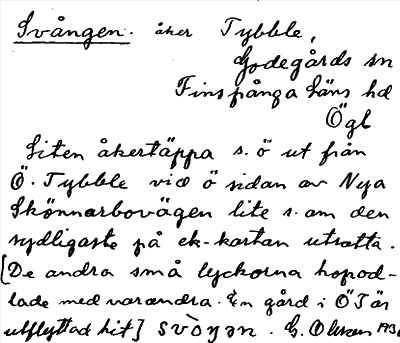 Svången. åker Tybble,
Godegårds sn
Finspånga läns hd
Ögl
Liten åkertäppa s. ö ut från
Ö. Tybble vid ö sidan av Nya
Skönnarbovägen lite s. om den
sydligaste på ek-kartan utsatta.
[De andra små lyckorna hopod-
lade med varandra. En gård i ÖT är
utflyttad hit] svòŋən. G. Olsson